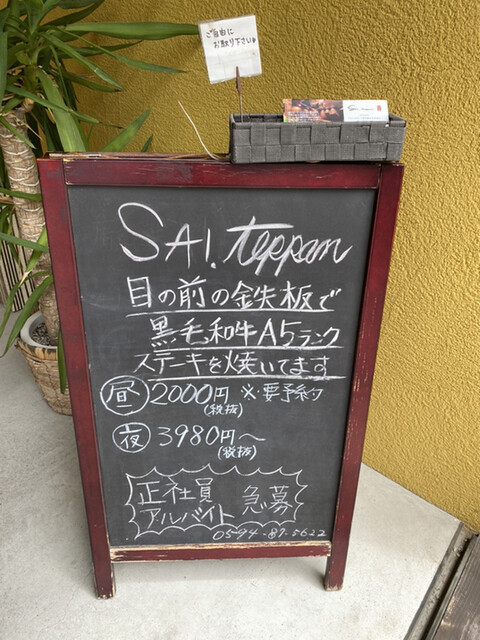 ご自由に
お取り下さい
SAI. teppan
目の前の鉄板で
黒毛和牛A5ランク
ステーキを焼いてます
昼 2000円 ※要予約
(税抜)
夜 3980円～
(税抜)
正社員 急募
アルバイト
0594-87-5622